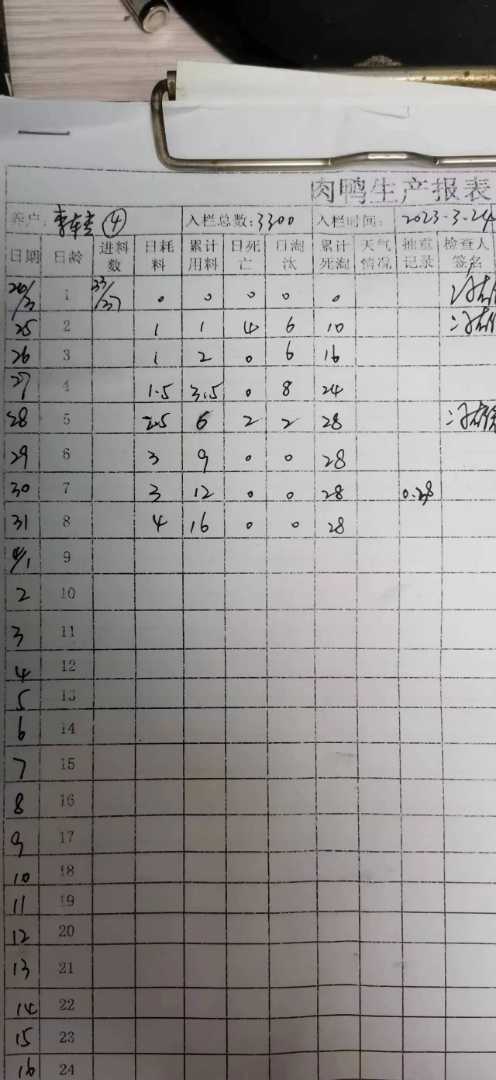 肉鸭生产报表
养户: ④ 入栏总数:3300 入栏时间: 2023-3-24
日期 日龄 进料数 日耗料 累计用料 日死亡 日淘汰 累计死淘 天气情况 抽查记录 检查人签名
24/3 1 33/37 0 0 0 0 0
25 2 1 1 4 6 10
26 3 1 2 0 6 16
27 4 1.5 3.5 0 8 24
28 5 2.5 6 2 2 28
29 6 3 9 0 0 28
30 7 3 12 0 0 28 0.28
31 8 4 16 0 0 28
4/1 9
2 10
3 11
4 12
5 13
6 14
7 15
8 16
9 17
10 18
11 19
12 20
13 21
14 22
15 23
16 24